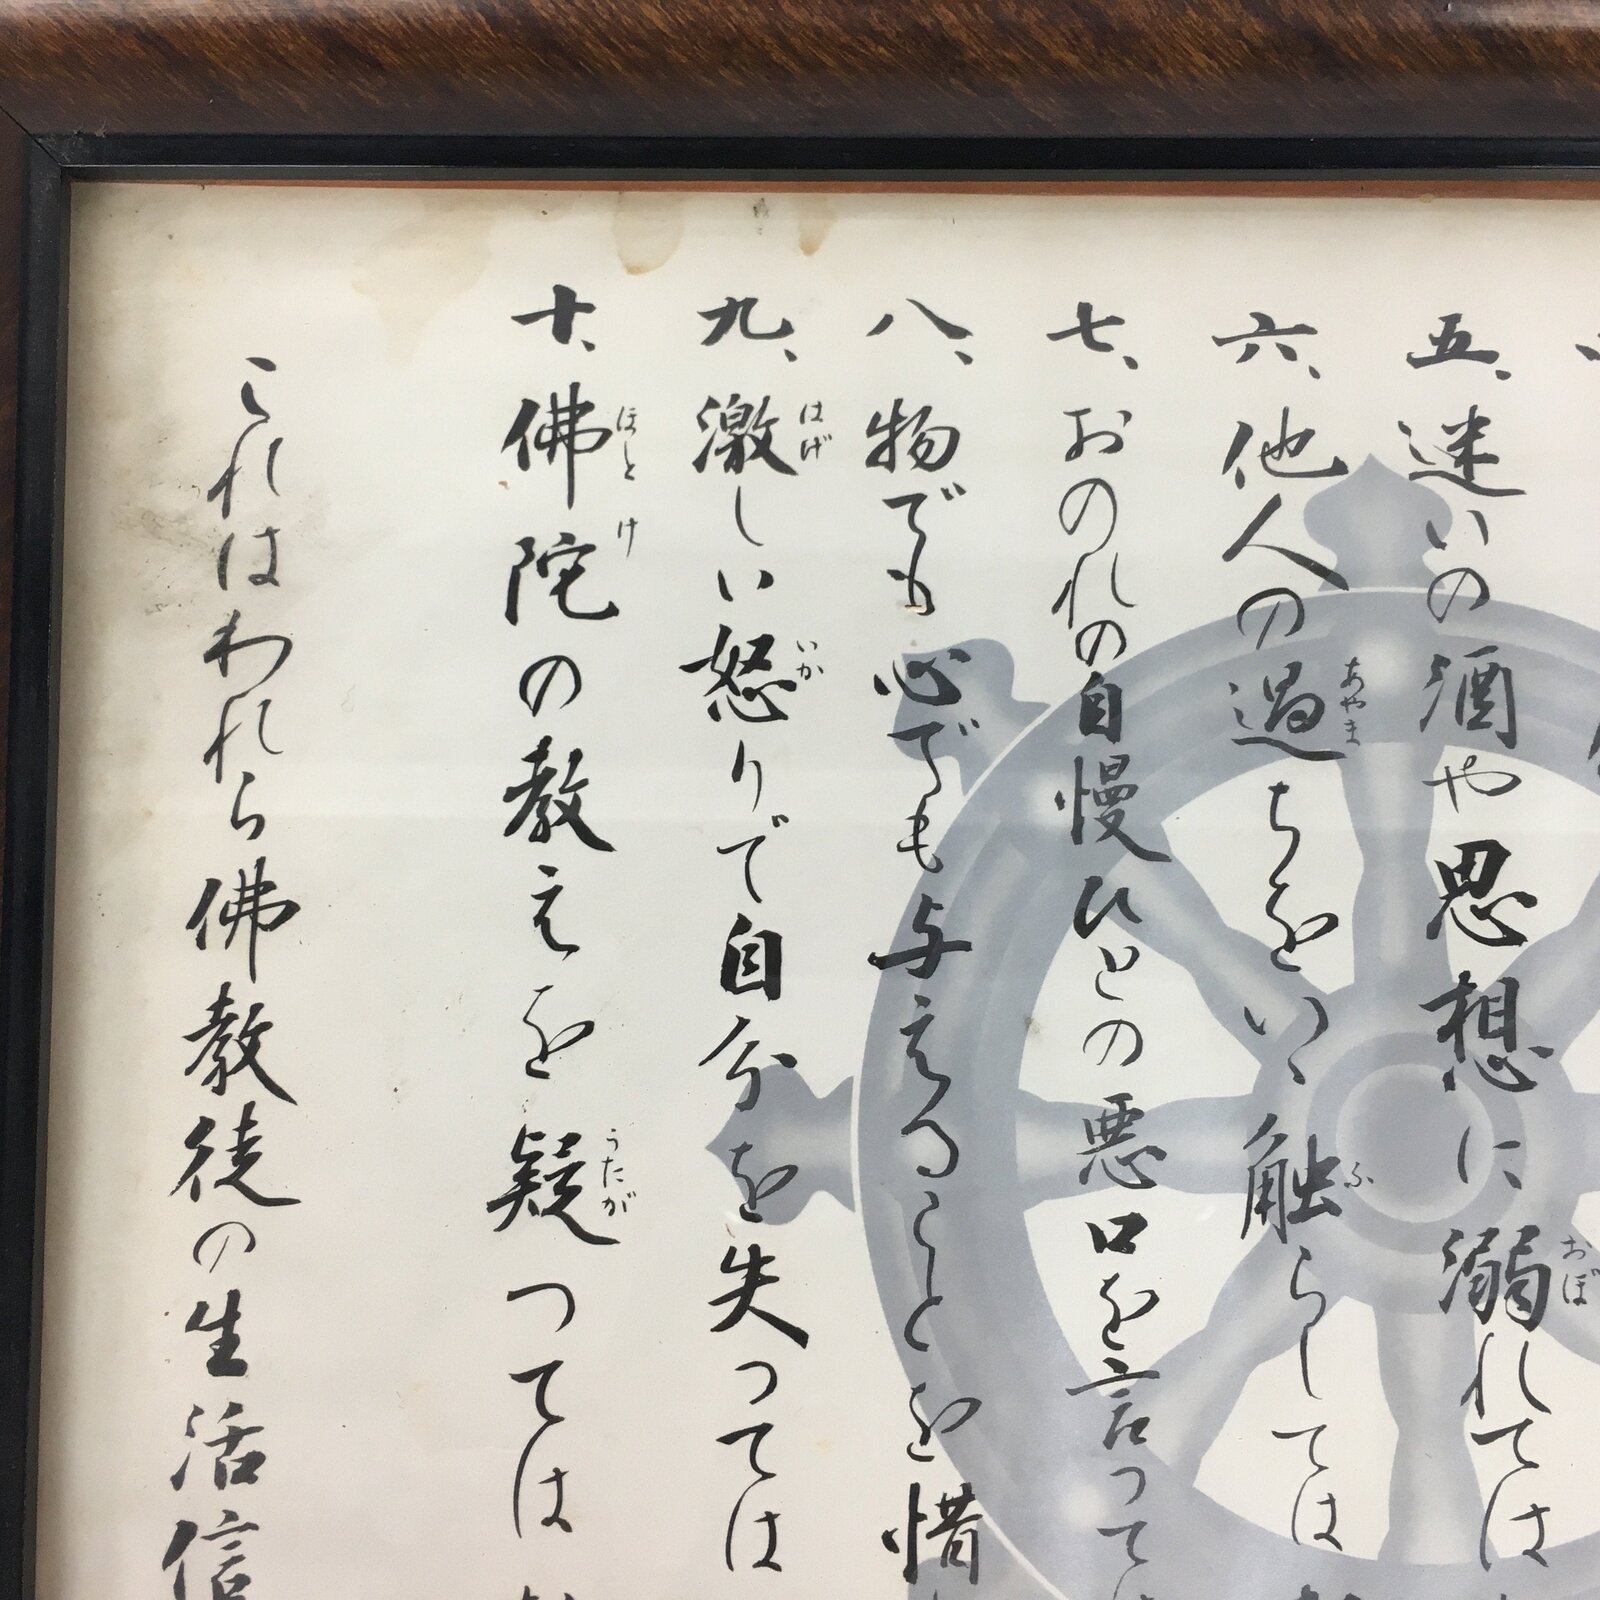 五、迷いの酒や思想に溺れては
六、他人の過ちをいい触らしては
七、おのれの自慢ひとの悪口を言っては
八、物でも心でも与えることを惜
九、激しい怒りで自分を失っては
十、佛陀の教えを疑つては
これはわれら佛教徒の生活信
おぼ
あやま
ふ
はげ
いか
ほとけ
うたが